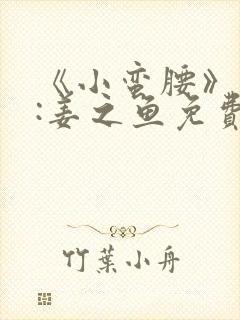 《小蛮腰》
:姜之鱼免費
竹葉小舟